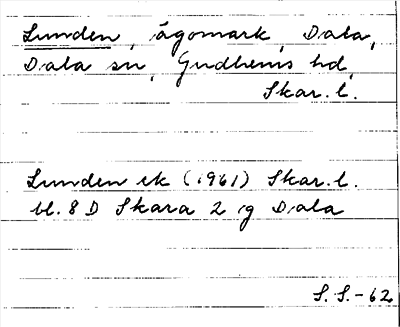 Lunden, ägomark Dala,
Dala sn, Gudhems hd,
Skar. l.
Lunden ek (1961) Skar. l.
bl. 8 D Skara 2 g Dala
S. S. -62